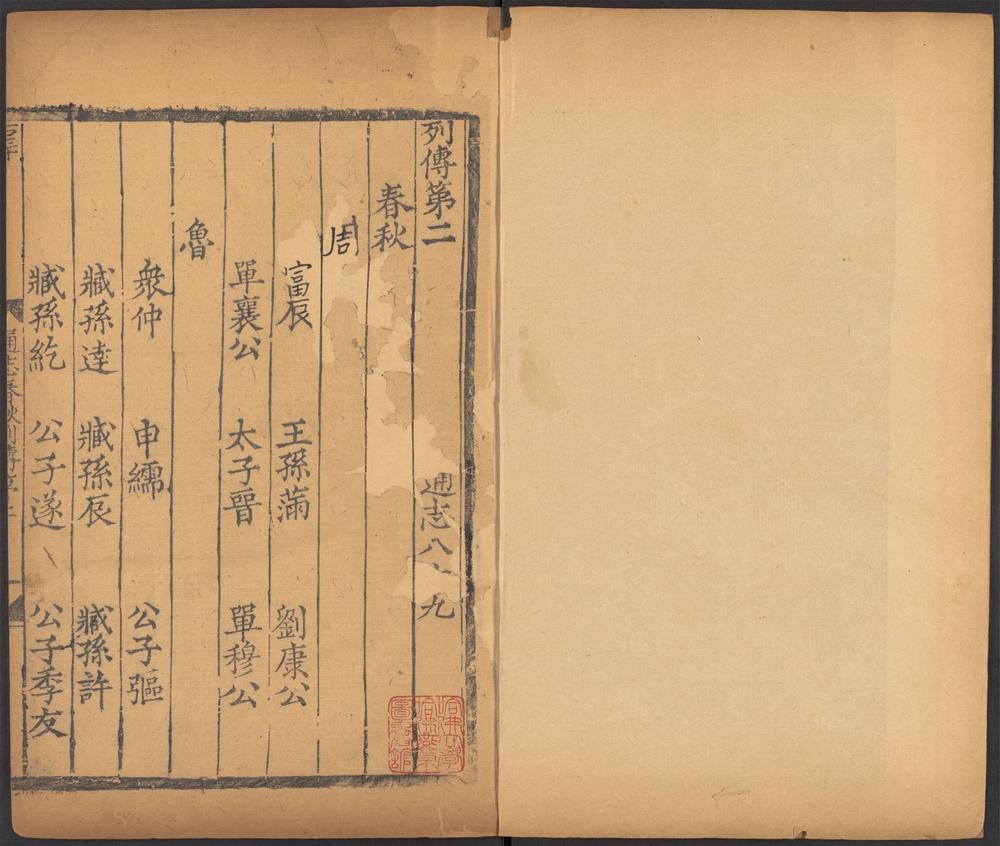 列傳第二 通志八十九
春秋
周
富辰 王孫滿 劉康公
單襄公 太子晉 單穆公
魯
衆仲 申繻 公子彄
臧孫達 臧孫辰 臧孫許
臧孫紇 公子遂 公子季友
通志春秋列傳卷二
哈佛大學哈佛燕京圖書館